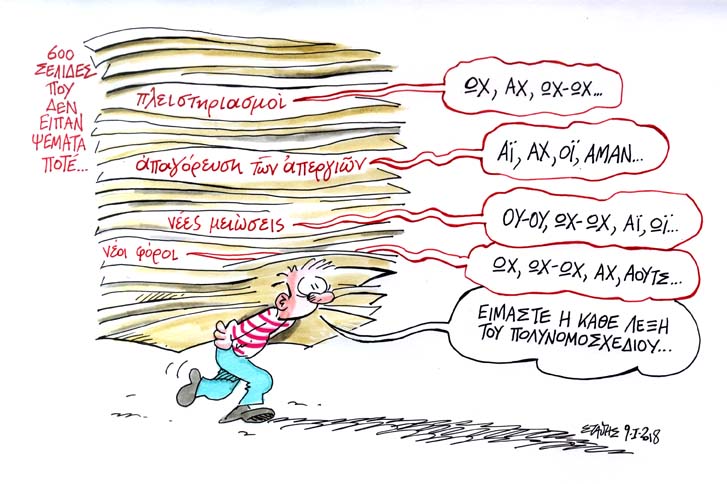 600
ΣΕΛΙΔΕΣ
ΠΟΥ
ΔΕΝ
ΕΙΠΑΝ
ΨΕΜΑΤΑ
ΠΟΤΕ...
πλειστηριασμοί
ΩΧ, ΑΧ, ΩΧ-ΩΧ...
ἀπαγόρευση τῶν ἀπεργιῶν
ΑΪ, ΑΧ, ΟΪ, ΑΜΑΝ...
νέες μειώσεις
ΟΥ-ΟΥ, ΩΧ-ΩΧ, ΑΪ, ΩΪ...
νέοι φόροι
ΩΧ, ΩΧ-ΩΧ, ΑΧ, ΑΟΥΤΣ...
ΕΙΜΑΣΤΕ Η ΚΑΘΕ ΛΕΞΗ
ΤΟΥ ΠΟΛΥΝΟΜΟΣΧΕΔΙΟΥ...
ΣΤΑΘΗΣ 9-I-2018